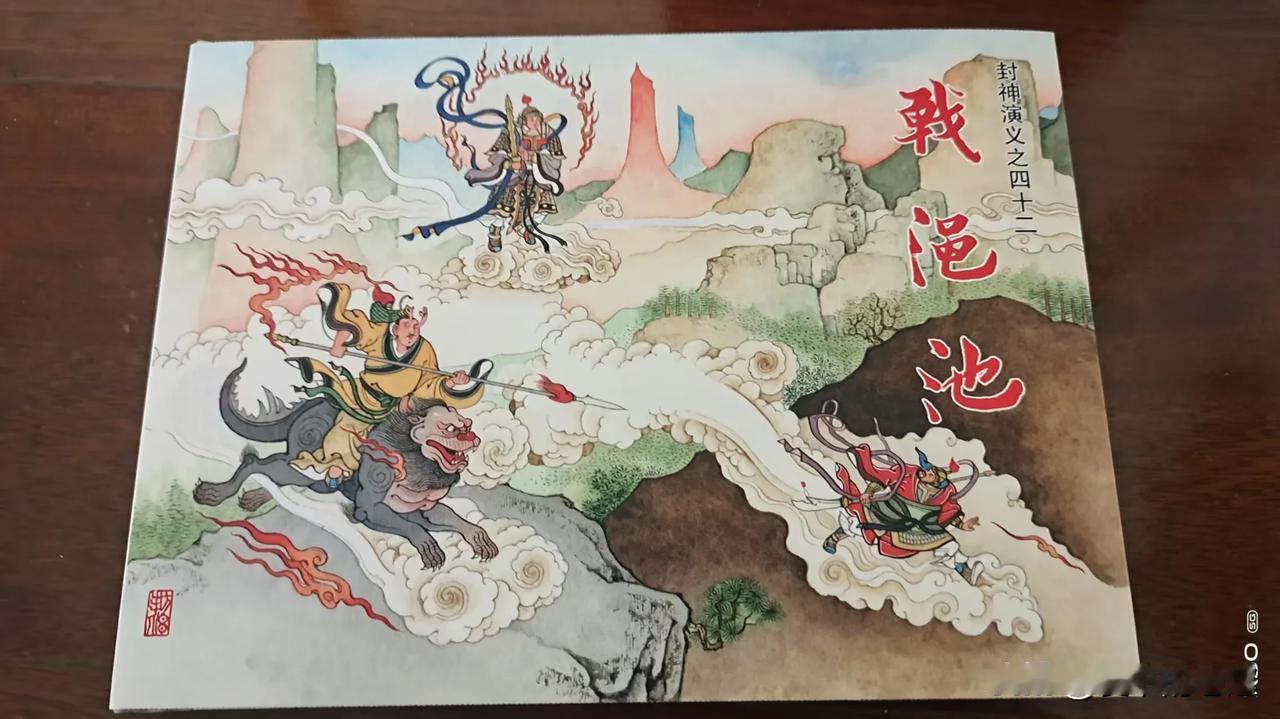 封神演义之四十二
戰渑池
5G